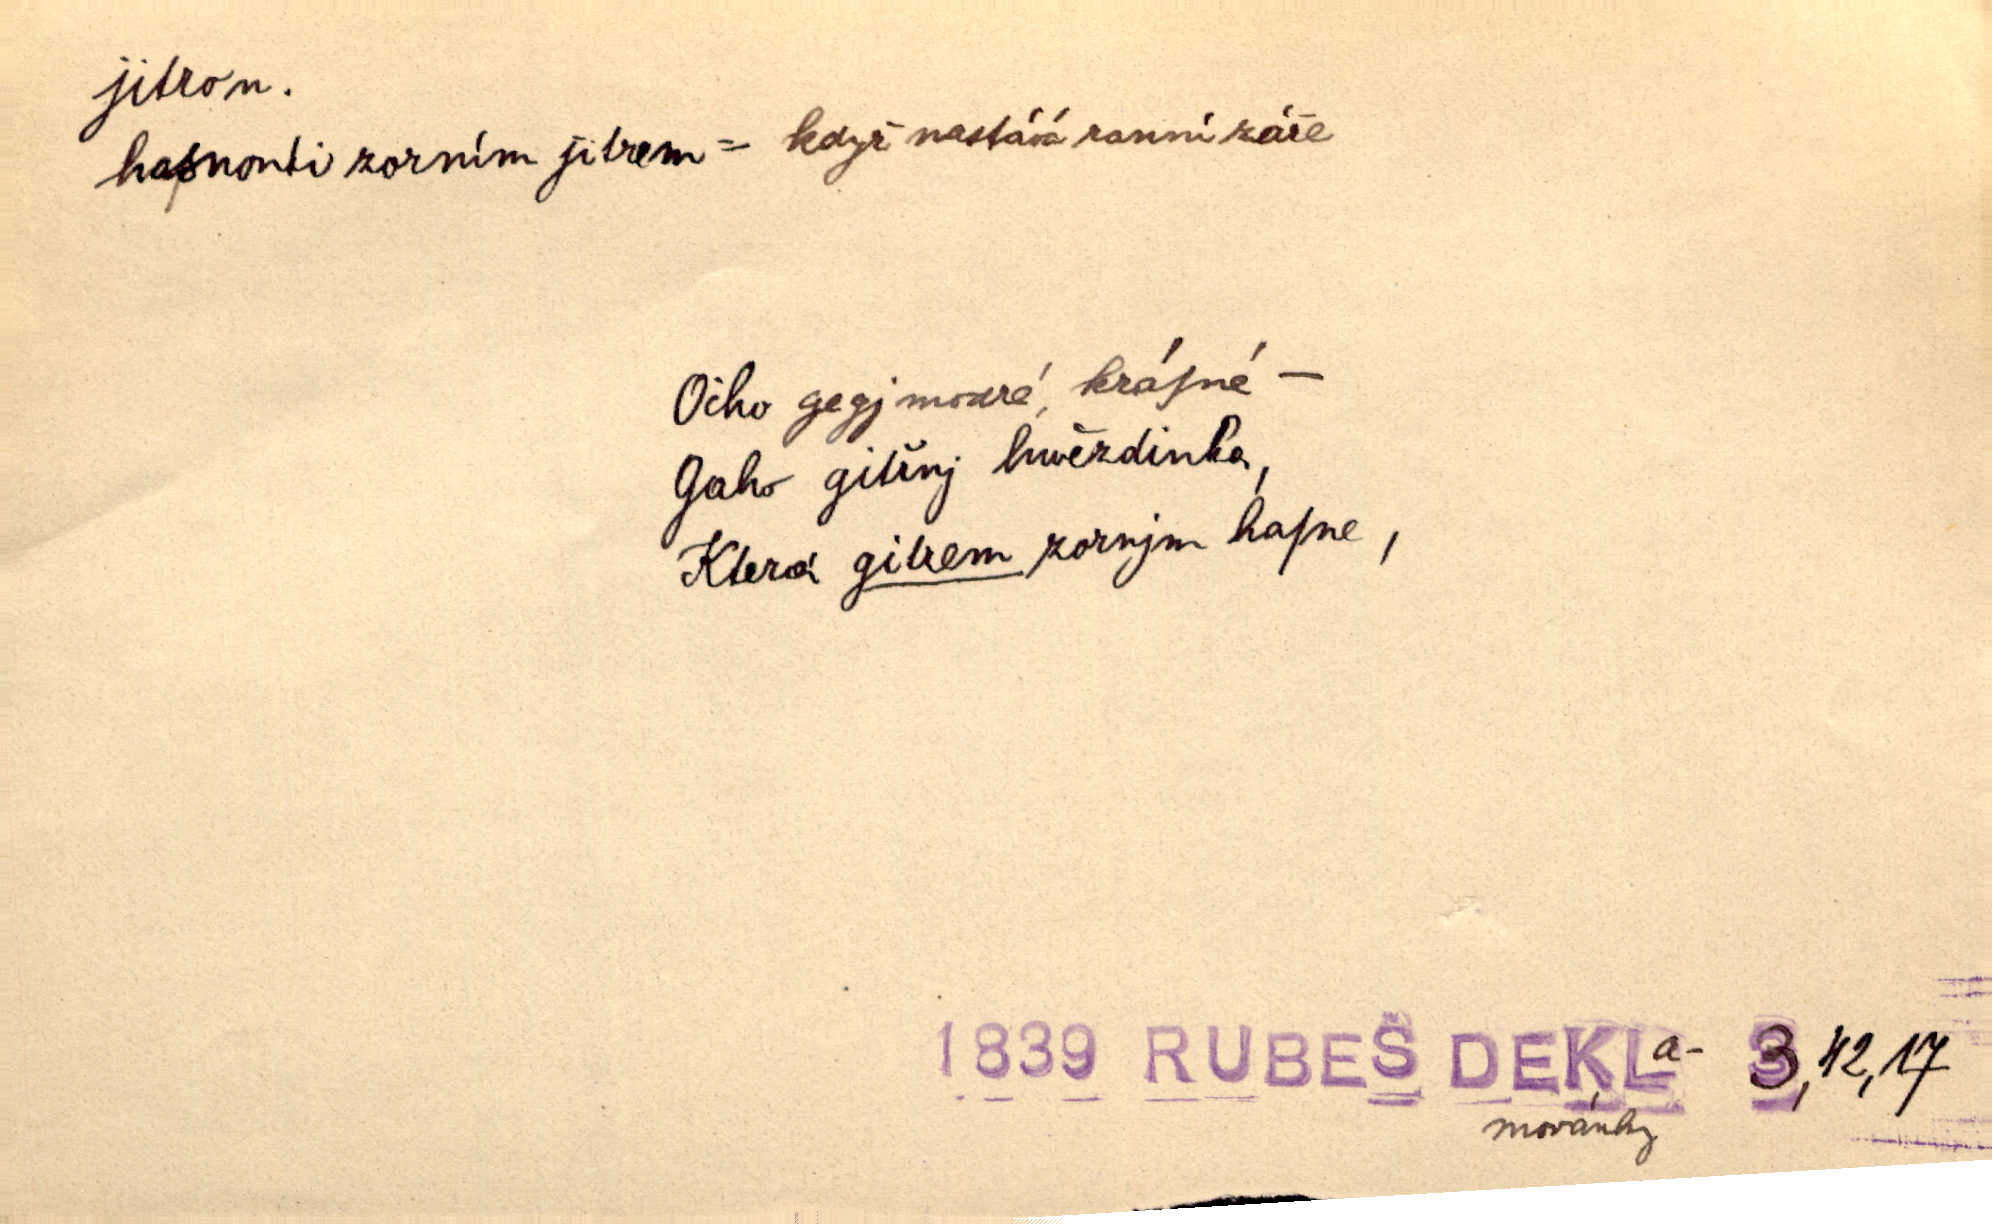 jitro n.
hasnouti zorním jitrem = když nastává ranní záře
Očko gegj modré, krásné —
Gako gitřnj hwězdinka,
Která gitrem zornjm hasne,
1839 RUBEŠ DEKLa- 3,42,17
movánky